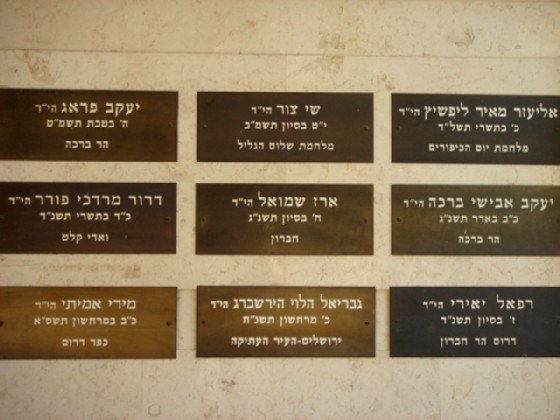 אליעזר מאיר ליפשיץ הי״ד
כ׳ בתשרי תשל״ד
מלחמת יום הכיפורים
שי צור הי״ד
י״ט בסיון תשמ״ב
מלחמת שלום הגליל
יעקב פראג הי״ד
ה׳ בטבת תשמ״ט
הר ברכה
יעקב אבישי ברכה הי״ד
כ״ב באדר תשנ״ג
הר ברכה
ארז שמואל הי״ד
ח׳ בסיון תשנ״ג
חברון
דרור מרדכי פורר הי״ד
כ״ד בתשרי תשנ״ד
ואדי קלט
רפאל יאירי הי״ד
ז׳ בסיון תשנ״ד
דרום הר חברון
גבריאל הלוי הירשברג הי״ד
כ׳ מרחשון תשנ״ח
ירושלים-העיר העתיקה
מירי אמיתי הי״ד
כ״ב במרחשון תשס״א
כפר דרום